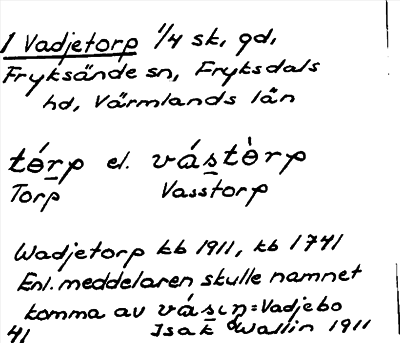 1 Vadjetorp 1/4 sk, gd,
Fryksände sn, Fryksdals
hd, Värmlands län
tórp el. vástèrp
Torp Vasstorp
Wadjetorp kb 1911, kb 1741
Enl. meddelaren skulle namnet
komma av vásın = Vadjebo
41 Isak Wallin 1911